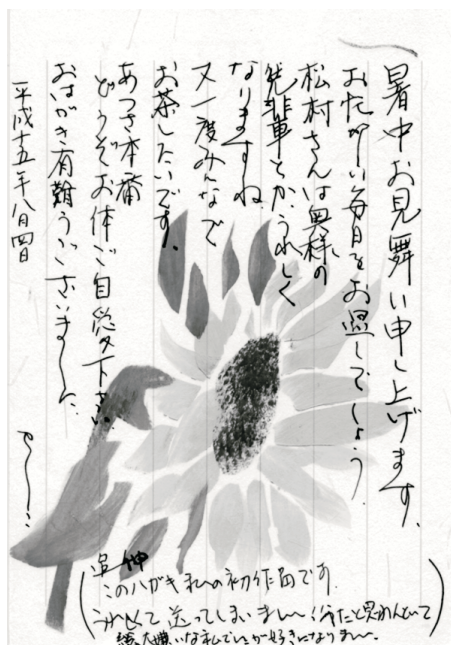 暑中お見舞い申し上げます。
お忙がしい毎日をお過しでしょう。
松村さんは奥様の
先輩とか、うれしく
なりますね。
又一度みんなで
お茶したいです。
あつさ本番
どうぞお体ご自愛下さい。
おはがき有難うございました。
平成十五年八月四日
追伸
このハガキ私の初作品です。
うれしくて送ってしまいました
大嫌いな私でしたが好きになりました。